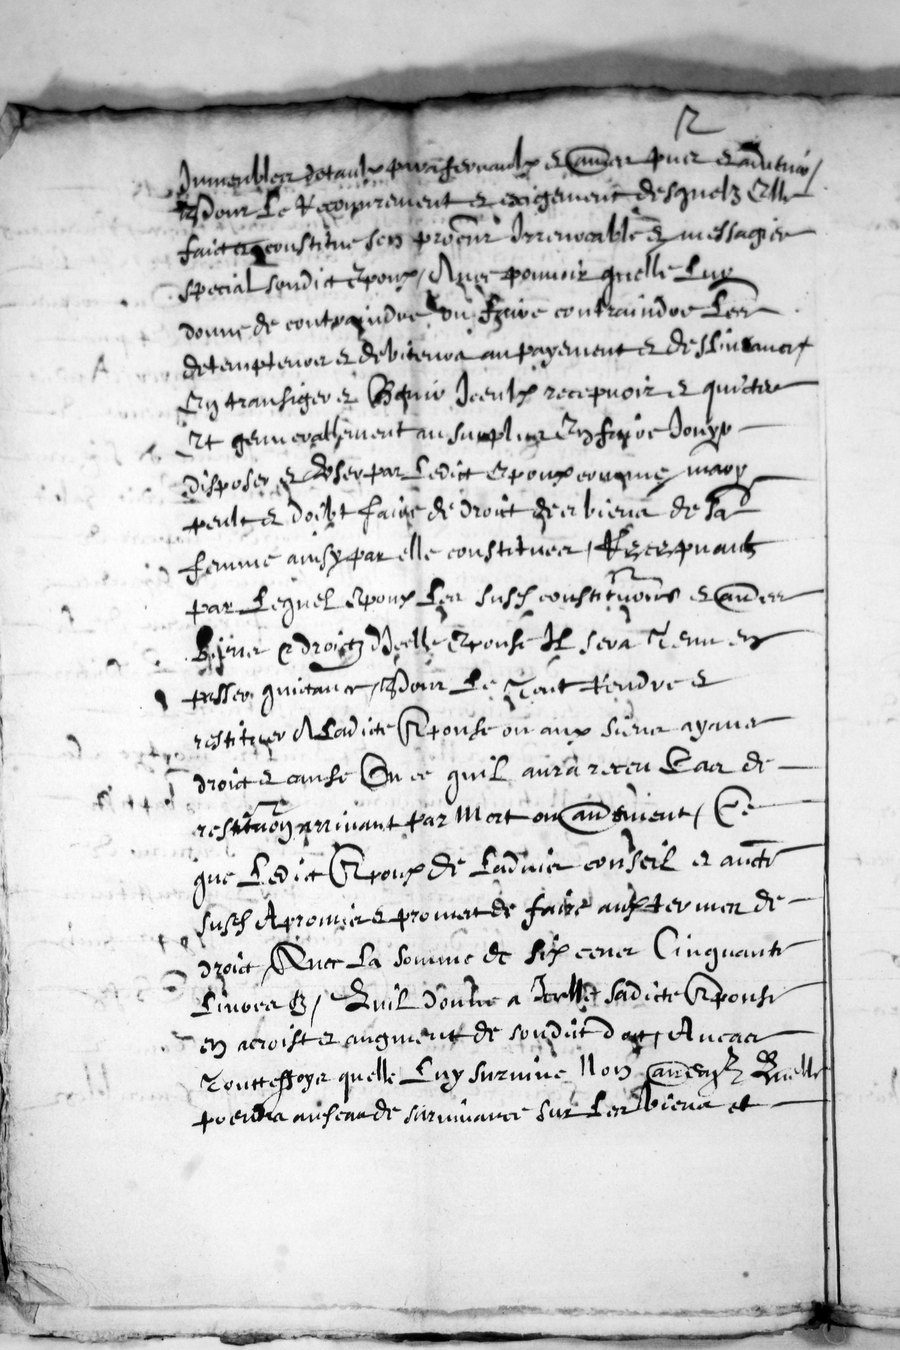 2
Immeubles dotaulx parafernaulx et autres pnes et advenir /
Pour le recouvrement et exigement desquelz elle
faict et constitue son procur irrevocable et messagier
special sondict espoux / Avec pouvoir quelle luy
donne de contraindre ou faire contraindre les
detempteurs et debiteurs au payement et deslivrance /
En transiger et iceulx recepvoir et quicter
Et generallement au surplus en faire jouyr
disposer et user par ledict espoux comme mary
peult et doibt faire de droict des biens de sa
femme ainsy par elle constitues / Recepvant
par lequel espoux les susd constituons et autres
biens et droictz dicelle espouse Il sera tenu en
passer quictance / Pour le tout rendre et
restituer a ladicte espouse ou aux siens ayans
droict et cause En ce quil aura receu Cas de
restituon arrivant par mort ou autrement / Et
que ledict espoux de ladvis conseil et auctte
susd a promis et promet de faire aux termes de
droict / Avec la somme de six cens cinquante
livres tz / Quil donne a icelle sadicte espouse
en acroist et augment de sondict dot / Au cas
touttesfoys quelle luy survive Non autremt Quelle
prendra au cas de survivance sur les biens et